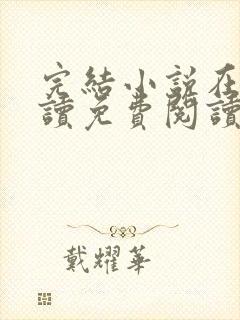 完結小說在
讀免費閱讀
戴耀華